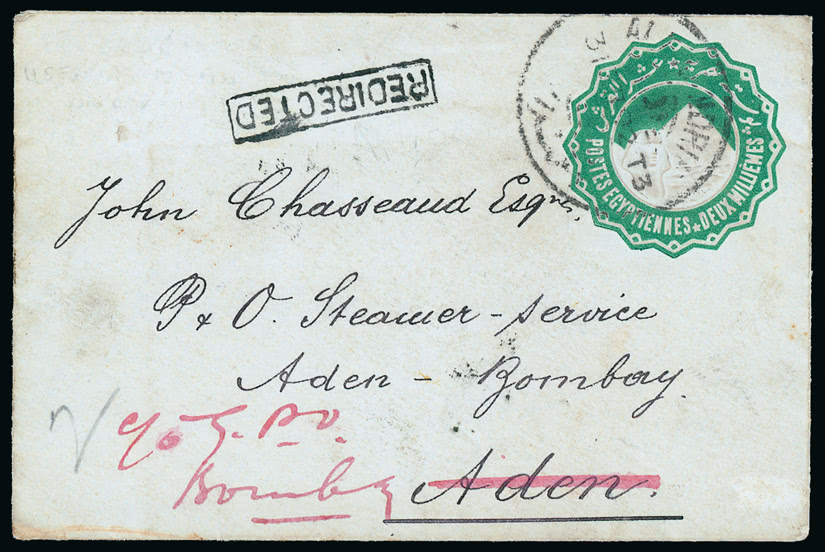 REDIRECTED
POSTES EGYPTIENNES ★ DEUX MILLIEMES
John Chasseaud Esqre.
P & O. Steamer-service
Aden - Bombay.
c/o G.P.O.
Bombay Aden.